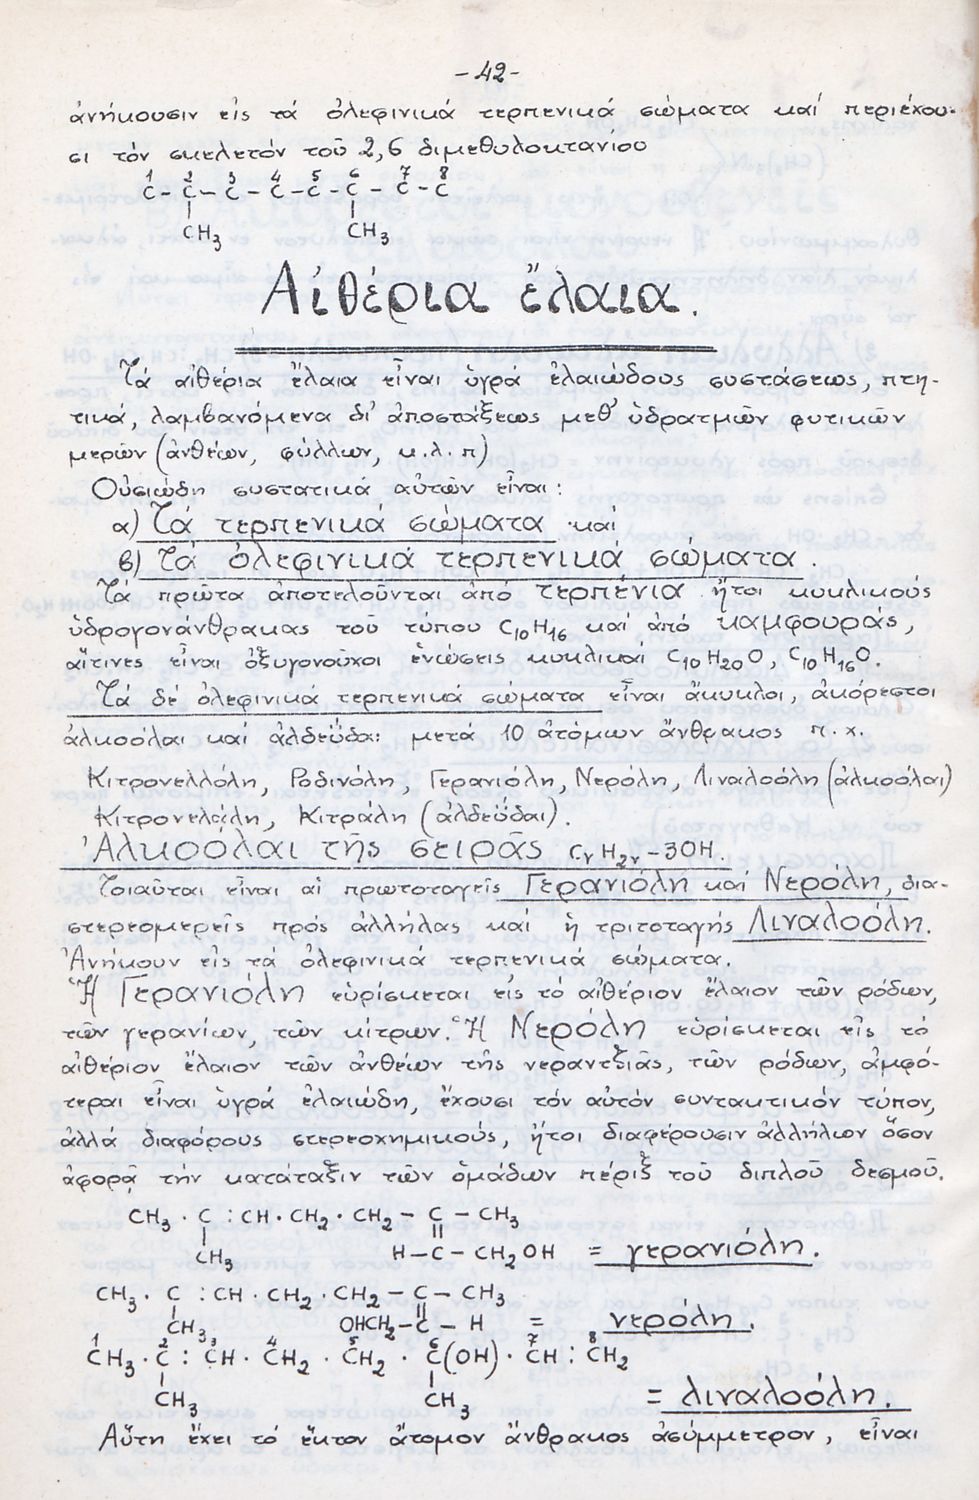 -42-
ἀνήκουσιν εἰς τά ὀλεφινικά τερπενικά σώματα καί περιέχου-
σι τόν σκελετόν τοῦ 2,6 διμεθυλοκτανίου
1 2 3 4 5 6 7 8
C - C - C - C - C - C - C - C
CH3 CH3
Αἰθέρια ἔλαια.
Τά αἰθέρια ἔλαια εἶναι ὑγρά ἐλαιώδους συστάσεως, πτη-
τικά, λαμβανόμενα δι' ἀποστάξεως μεθ' ὑδρατμῶν φυτικῶν
μερῶν (ἀνθέων, φύλλων, κ.λ.π)
Οὐσιώδη συστατικά αὐτῶν εἶναι:
α) Τά τερπενικά σώματα καί
β) Τά ὀλεφινικά τερπενικά σώματα
Τα πρῶτα ἀποτελοῦνται ἀπό τερπένια ἤτοι κυκλικούς
ὑδρογονάνθρακας τοῦ τύπου C10H16 καί ἀπό καμφουράς,
αἵτινες εἶναι ὀξυγονοῦχοι ἑνώσεις κυκλικαί C10H20O, C10H16O.
Τά δέ ὀλεφινικά τερπενικά σώματα εἶναι ἄκυκλοι, ἀκόρεστοι
ἀλκοόλαι καί ἀλδεΰδαι μετά 10 ἀτόμων ἄνθρακος π.χ.
Κιτρονελλόλη, Ροδινόλη, Γερανιόλη, Νερόλη, Λιναλοόλη (ἀλκοόλαι)
Κιτρονελάλη, Κιτράλη (ἀλδεΰδαι).
Ἀλκοόλαι τῆς σειρᾶς CνH2ν-3OH.
Τοιαῦται εἶναι αἱ πρωτοταγεῖς Γερανιόλη καί Νερόλη, δια-
στερεομερεῖς πρός ἀλλήλας καί ἡ τριτοταγής Λιναλοόλη.
Ἀνήκουν εἰς τά ὀλεφινικα τερπενικά σώματα.
Ἡ Γερανιόλη εὑρίσκεται εἰς τό αἰθέριον ἔλαιον τῶν ρόδων,
τῶν γερανίων, τῶν κίτρων. Ἡ Νερόλη εὑρίσκεται εἰς το
αἰθέριον ἔλαιον τῶν ἀνθέων τῆς νεραντζιάς, τῶν ρόδων, ἀμφό-
τεραι εἶναι ὑγρά ἐλαιώδη, ἔχουσι τόν αὐτόν συντακτικόν τύπον,
ἀλλά διαφόρους στερεοχημικούς, ἤτοι διαφέρουσιν ἀλλήλων ὅσον
ἀφορᾷ τήν κατάταξιν τῶν ὁμάδων πέριξ τοῦ διπλοῦ δεσμοῦ.
CH3 · C : CH · CH2 · CH2 - C - CH3
CH3 H - C - CH2OH = γερανιόλη.
CH3 · C : CH · CH2 · CH2 - C - CH3
CH3 OHCH2-C - H = νερόλη.
1 2 3 4 5 6 7 8
CH3 · C : CH · CH2 · CH2 · C(OH) · CH : CH2
CH3 CH3 = λιναλοόλη.
Αὕτη ἔχει τό ἕκτον ἄτομον ἄνθρακος ἀσύμμετρον, εἶναι